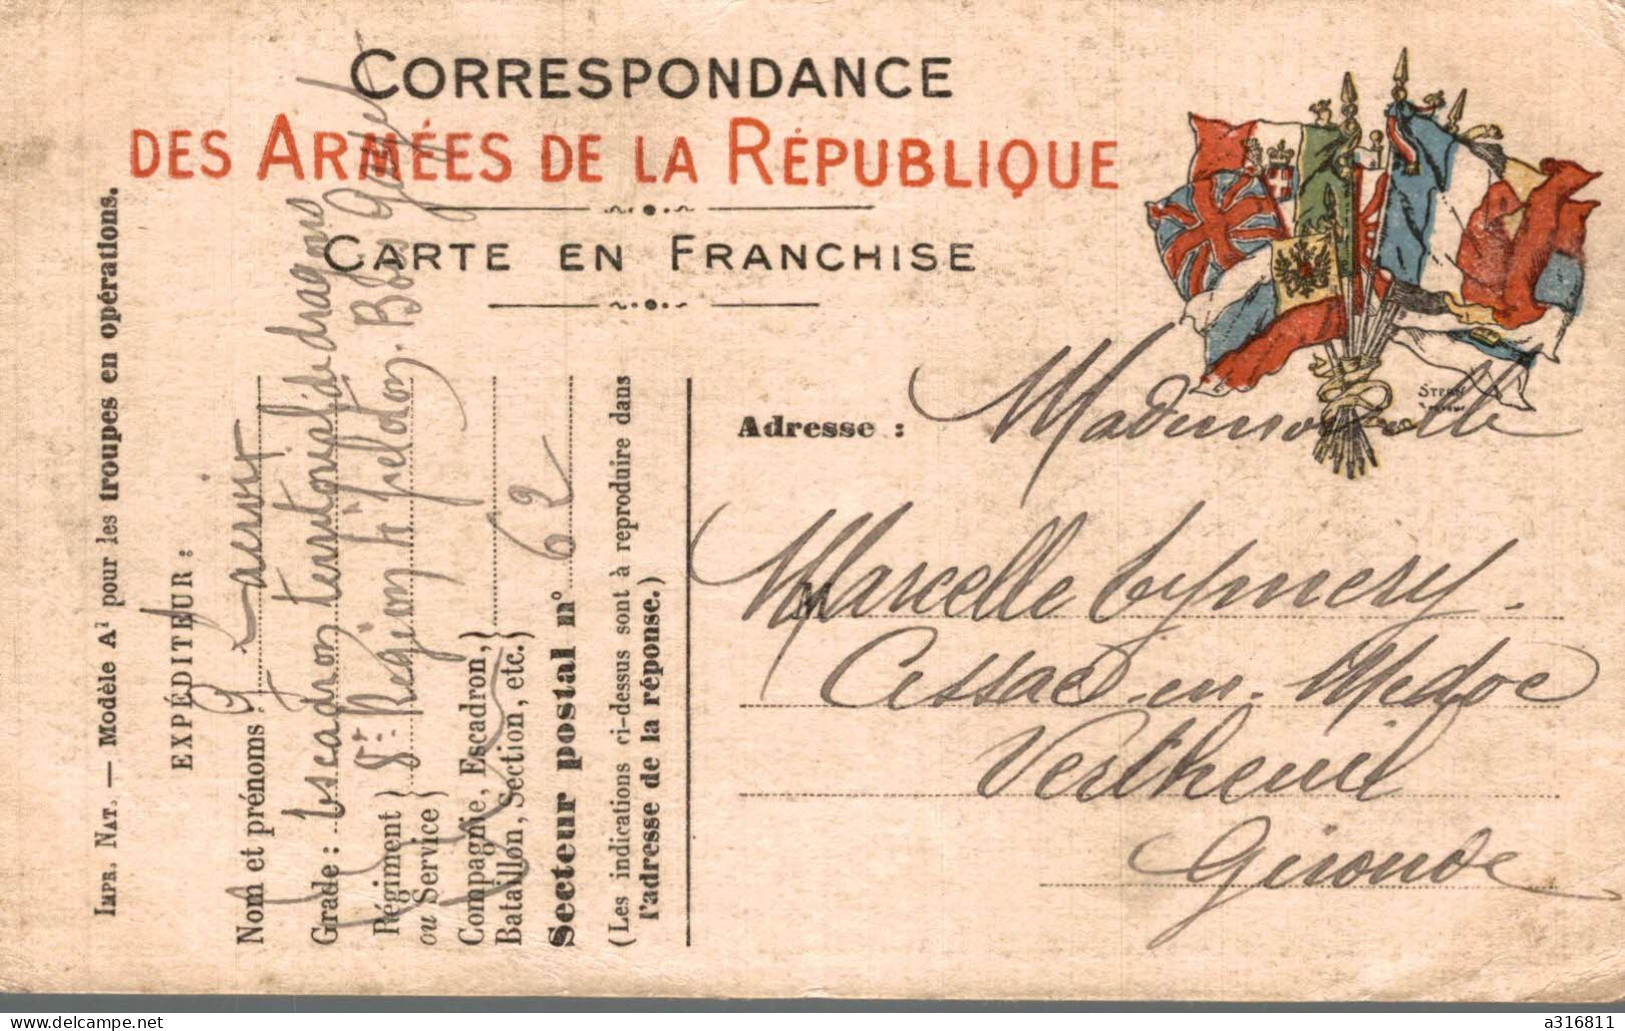 CORRESPONDANCE
DES ARMÉES DE LA RÉPUBLIQUE
CARTE EN FRANCHISE
IMPR. NAT. — Modèle A¹ pour les troupes en opérations.
EXPÉDITEUR :
Nom et prénoms
Grade : Escadron territorial de dragons
Régiment } 8e Région
ou Service }
Compagnie, Escadron, }
Bataillon, Section, etc. }
Secteur postal n° 62
(Les indications ci-dessus sont à reproduire dans
l'adresse de la réponse.)
STERN
Adresse : Mademoiselle
Marcelle Eymery.
Cissac-en-Médoc
Vertheuil
Gironde
delcampe.net
a316811